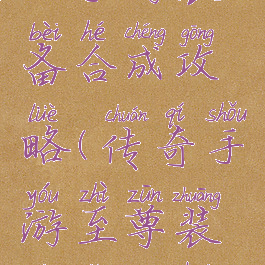 bèi hé chéng gōng
备合成攻
lüè chuán qí shǒu
略(传奇手
yóu zhì zūn zhuāng
游至尊装